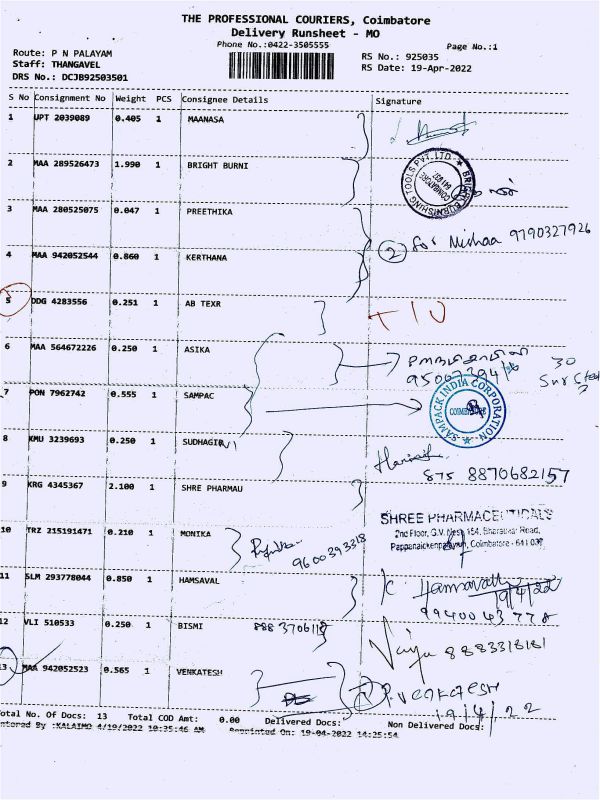 THE PROFESSIONAL COURIERS, Coimbatore
Delivery Runsheet - MO
Phone No.:0422-3505555
Page No.:1
Route: P N PALAYAM
RS No.: 925035
Staff: THANGAVEL
RS Date: 19-Apr-2022
DRS No.: DCJB92503501
S No Consignment No Weight PCS Consignee Details Signature
1 UPT 2039089 0.405 1 MAANASA
2 MAA 289526473 1.990 1 BRIGHT BURNI
BRIGHT BURNISHING TOOLS PVT. LTD.
COIMBATORE
3 MAA 280525075 0.047 1 PREETHIKA
2 for Nishaa 9790327926
4 MAA 942052544 0.860 1 KERTHANA
5 DDG 4283556 0.251 1 AB TEXR
6 MAA 564672226 0.250 1 ASIKA
30
7 PON 7962742 0.555 1 SAMPAC
SAMPACK INDIA CORPORATION
COIMBATORE
8 KMU 3239693 0.250 1 SUDHAGINI
875 8870682157
9 KRG 4345367 2.100 1 SHRE PHARMAU
SHREE PHARMACEUTICALS
2nd Floor, G.V. 154, Bharathiar Road,
Pappanaickenpalayam, Coimbatore - 641 037
10 TRZ 215191471 0.210 1 MONIKA
9600393318
11 SLM 293778044 0.850 1 HAMSAVAL
19/4/22
9940043778
12 VLI 510533 0.250 1 BISMI
8883318181
13 MAA 942052523 0.565 1 VENKATESH
P. VENKATESH
19/4/22
Total No. Of Docs: 13 Total COD Amt: 0.00 Delivered Docs: Non Delivered Docs:
ntered By :KALAIMO 4/19/2022 10:35:46 AM Reprinted On: 19-04-2022 14:25:54